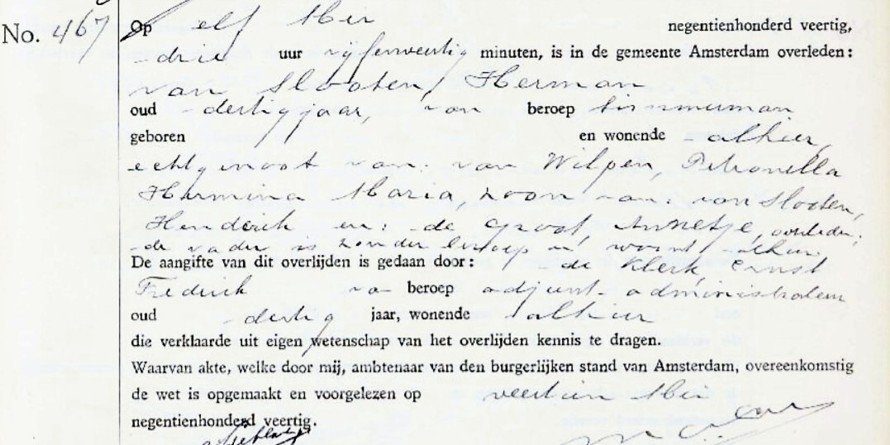 No. 467
Op elf Mei negentienhonderd veertig,
drie uur vijfenveertig minuten, is in de gemeente Amsterdam overleden:
van Slooten, Herman
oud dertig jaar, van beroep timmerman
geboren en wonende alhier,
echtgenoot van: van Wilpen, Petronella
Hermina Maria, zoon van: van Slooten,
Henderik en: de Groot Annetje, overleden;
de vader is zonder beroep en woont alhier
De aangifte van dit overlijden is gedaan door: de Klerk, Ernst
Frederik van beroep adjunct-administrateur
oud dertig jaar, wonende alhier
die verklaarde uit eigen wetenschap van het overlijden kennis te dragen.
Waarvan akte, welke door mij, ambtenaar van den burgerlijken stand van Amsterdam, overeenkomstig
de wet is opgemaakt en voorgelezen op veertien Mei
negentienhonderd veertig.